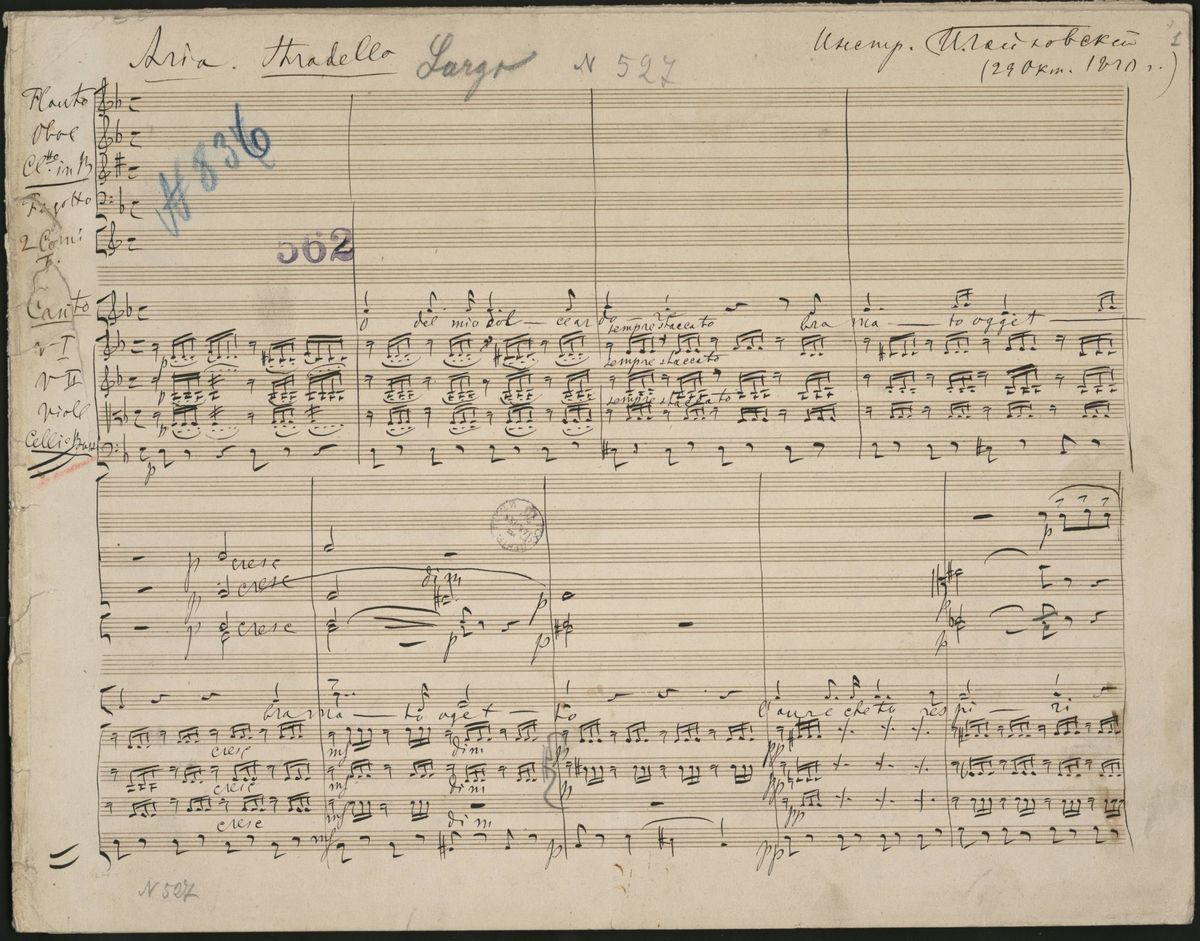 Aria. Stradella Largo N 527
Инстр. П. Чайковский 1
(29 Окт. 1870 г.)
Flauto
Oboe
Cl.tto in B
Fagotto
2 Corni
F.
№ 836
562
Canto
O del mio dol — ce ar do — bra ma — to ogget —
V I
p
sempre staccato
V II
p
sempre staccato
Viole
p
sempre staccato
Celli e Bassi
p
p
p cresc
p cresc dim p
p cresc p p p
bra ma — to oget — to l'aure che to respi — ri
cresc mf dim pp pp
cresc mf dim p pp
cresc mf dim pp
mf p pp
N 527